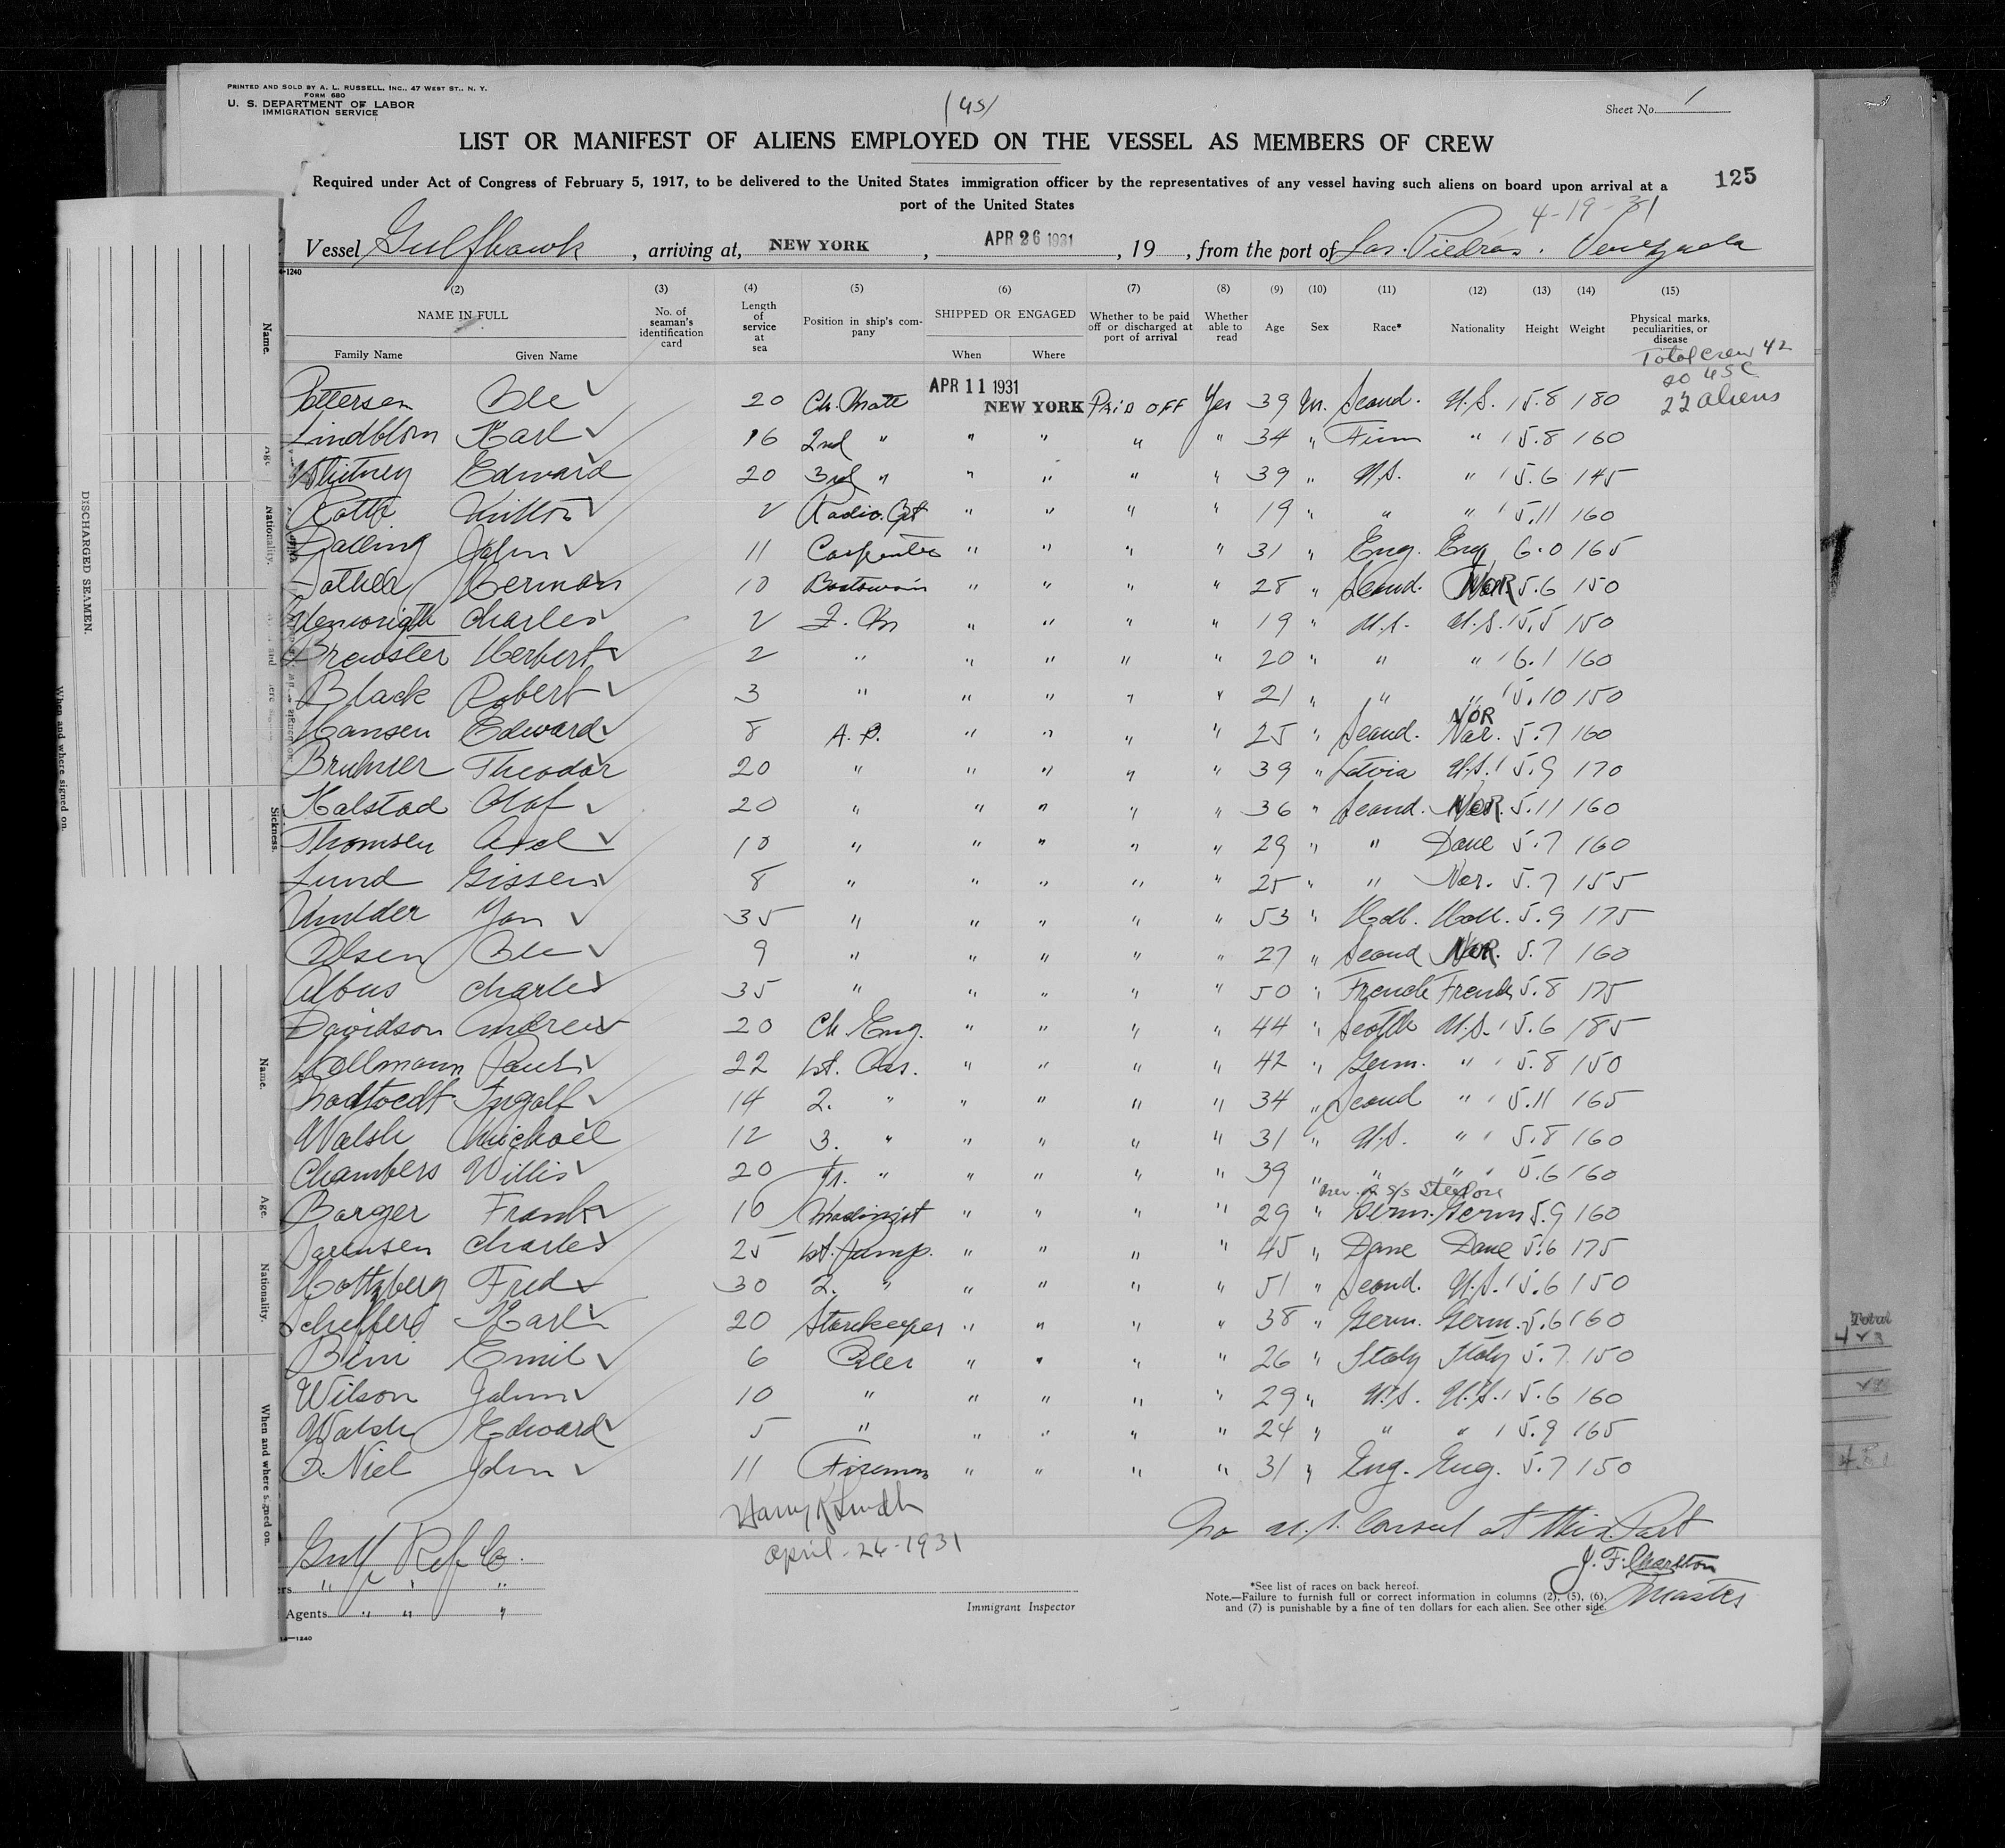 PRINTED AND SOLD BY A. L. RUSSELL, INC., 47 WEST ST., N. Y.
FORM 680
U. S. DEPARTMENT OF LABOR
IMMIGRATION SERVICE
Sheet No. 1
LIST OR MANIFEST OF ALIENS EMPLOYED ON THE VESSEL AS MEMBERS OF CREW
Required under Act of Congress of February 5, 1917, to be delivered to the United States immigration officer by the representatives of any vessel having such aliens on board upon arrival at a
port of the United States
125
4-19-31
Vessel Gulfhawk, arriving at, NEW YORK, APR 26 1931, 19 , from the port of Las Piedras. Venezuela
(2) (3) (4) (5) (6) (7) (8) (9) (10) (11) (12) (13) (14) (15)
NAME IN FULL
Family Name Given Name
No. of seaman's identification card
Length of service at sea
Position in ship's company
SHIPPED OR ENGAGED
When Where
Whether to be paid off or discharged at port of arrival
Whether able to read
Age Sex Race* Nationality Height Weight
Physical marks, peculiarities, or disease
Total crew 42
20 USC
22 aliens
APR 11 1931
Pettersen Ole 20 Ch. Mate NEW YORK Paid off Yes 39 M. Scand. U.S. 5.8 180
Lindblom Karl 16 2nd " " " " " 34 " Finn " 5.8 160
Whitney Edward 20 3rd " " " " " 39 " U.S. " 5.6 145
Roth Milton 2 Radio. Opt " " " " 19 " " " 5.11 160
Dalling John 11 Carpenter " " " " 31 " Eng. Eng. 6.0 165
Herman 10 Boatswain " " " " 28 " Scand. NOR 5.6 150
Charles 2 " " " " 19 " U.S. U.S. 5.5 150
Brewster Herbert 2 " " " " " 20 " " " 6.1 160
Black Robert 3 " " " " " 21 " " " 5.10 150
Hansen Edward 8 A. B. " " " " 25 " Scand. NOR Nor. 5.7 160
Bruhner Theodor 20 " " " " " 39 " Latvia U.S. 5.9 170
Kalstad Olaf 20 " " " " " 36 " Scand. NOR. 5.11 160
Thomsen Axel 10 " " " " " 29 " " Dane 5.7 160
Lund Gissen 8 " " " " " 25 " " Nor. 5.7 155
Mulder Jan 35 " " " " " 53 " Holl. Holl. 5.9 175
Olsen Ole 9 " " " " " 27 " Scand NOR. 5.7 160
Albus Charles 35 " " " " " 50 " French French 5.8 175
Davidson Andrew 20 Ch. Eng. " " " " 44 " Scotch U.S. 5.6 185
Hollmann Paul 22 1st. Ass. " " " " 42 " Germ. " 5.8 150
Ingolf 14 2. " " " " " 34 " Scand " 5.11 165
Walsh Michael 12 3. " " " " " 31 " U.S. " 5.8 160
Chambers Willis 20 Jr. " " " " " 39 " " " 5.6 160
Barger Frank 16 Machinist " " " " 29 " Germ. Germ 5.9 160
Sorensen Charles 25 1st. Pump. " " " " 45 " Dane Dane 5.6 175
Hottzberg Fred 30 2. " " " " " 51 " Scand. U.S. 5.6 150
Scheffers Karl 20 Storekeeper " " " " 38 " Germ. Germ. 5.6 160
Bini Emil 6 Oiler " " " " 26 " Italy Italy 5.7 150
Wilson John 10 " " " " " 29 " U.S. U.S. 5.6 160
Walsh Edward 5 " " " " " 24 " " " 5.9 165
O. Niel John 11 Fireman " " " " 31 " Eng. Eng. 5.7 150
April-26-1931
No U.S. Consul at this Port
J. F. Charlton
Master
Gulf Ref. Co.
" " "
Agents " " "
Immigrant Inspector
*See list of races on back hereof.
Note.—Failure to furnish full or correct information in columns (2), (5), (6),
and (7) is punishable by a fine of ten dollars for each alien. See other side.
14—1240
DISCHARGED SEAMEN.
Name.
Nationality.
Sickness.
When and where signed on.
Name.
Age.
Nationality.
When and where signed on.
Total